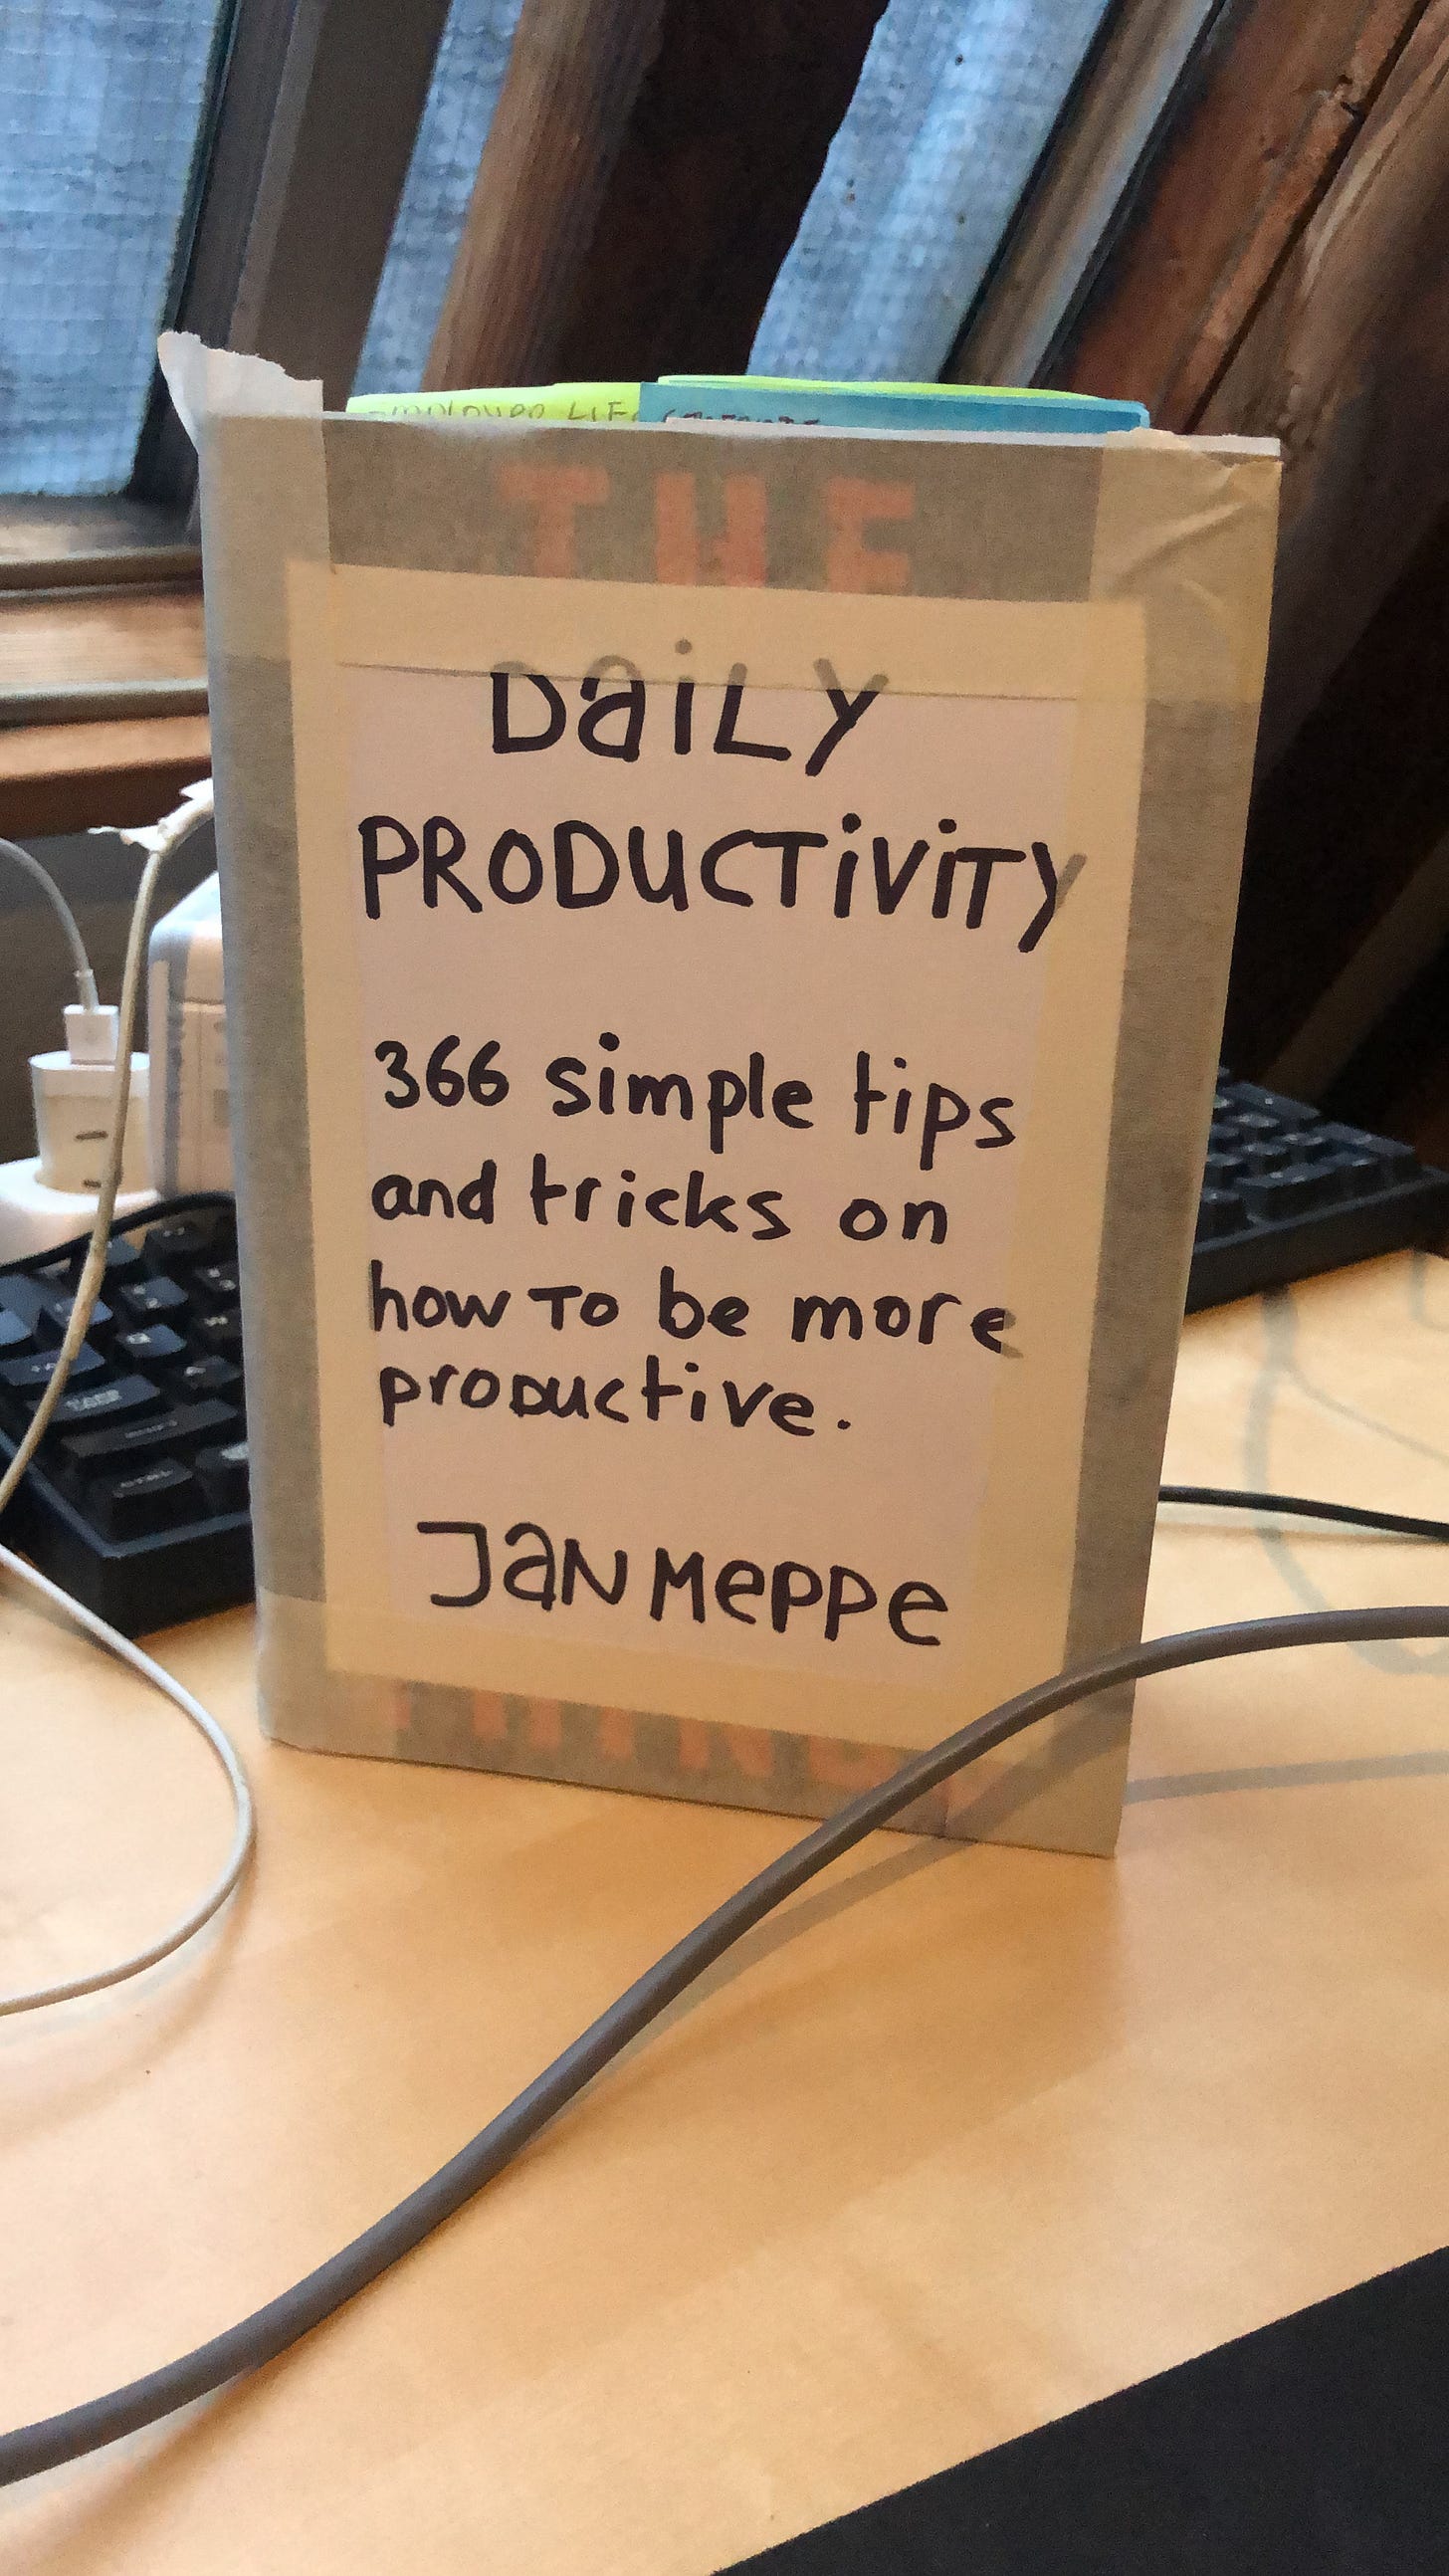 THE
DaiLY
PRODUCTiViTY
366 simple tips
and tricks on
how To be more
productive.
JaN Meppe